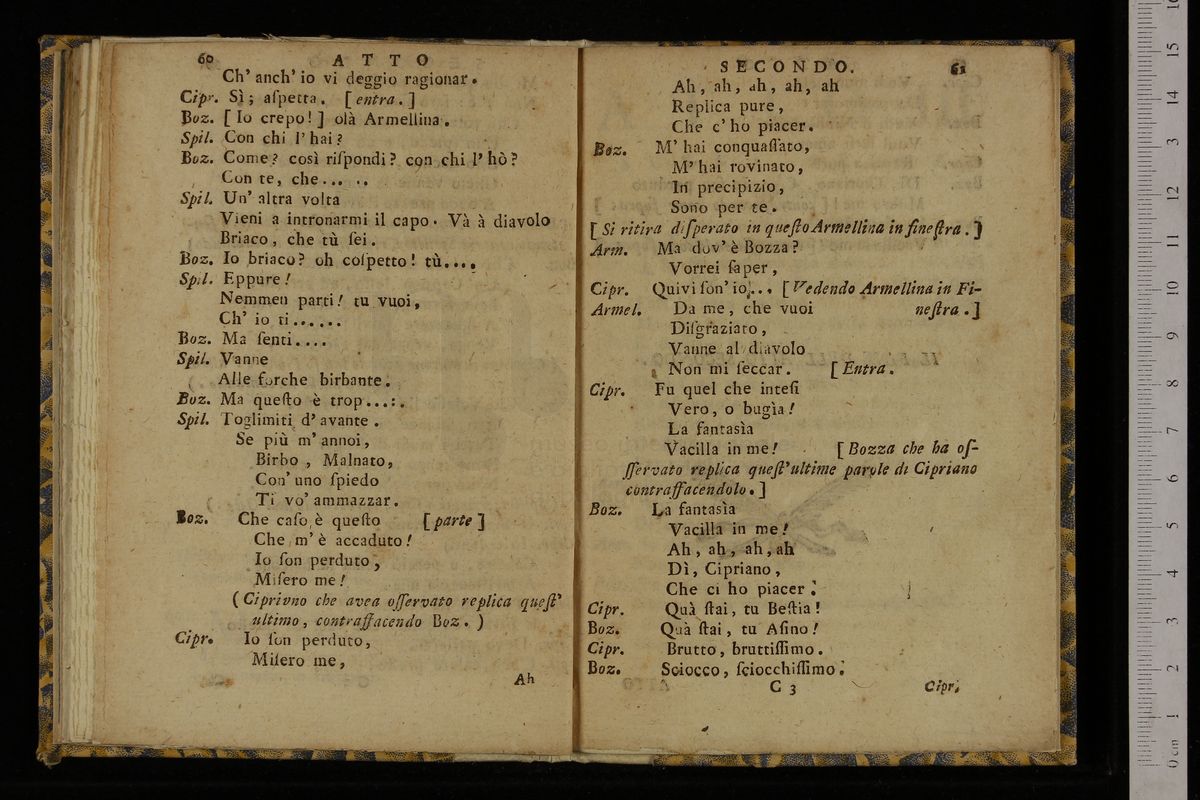 60 ATTO
Ch' anch' io vi deggio ragionar.
Cipr. Sì; aſpetta. [ entra. ]
Boz. [ Io crepo! ] olà Armellina.
Spil. Con chi l' hai?
Boz. Come? così riſpondi? con chi l' hò?
Con te, che... ..
Spil. Un' altra volta
Vieni a intronarmi il capo. Và à diavolo
Briaco, che tù ſei.
Boz. Io briaco? oh coſpetto! tù....
Spil. Eppure!
Nemmen parti! tu vuoi,
Ch' io ti......
Boz. Ma ſenti....
Spil. Vanne
Alle forche birbante.
Boz. Ma queſto è trop...:.
Spil. Toglimiti d' avante.
Se più m' annoi,
Birbo, Malnato,
Con' uno ſpiedo
Ti vo' ammazzar.
Boz. Che caſo è queſto [ parte ]
Che m' è accaduto!
Io ſon perduto,
Miſero me!
( Ciprivno che avea oſſervato replica queſt'
ultimo, contraffacendo Boz. )
Cipr. Io ſon perduto,
Miſero me,
Ah
SECONDO. 61
Ah, ah, ah, ah, ah
Replica pure,
Che c' ho piacer.
Boz. M' hai conquaſſato,
M' hai rovinato,
In precipizio,
Sono per te.
[ Si ritira diſperato in queſto Armellina in fineſtra. ]
Arm. Ma dov' è Bozza?
Vorrei ſaper,
Cipr. Quivi ſon' io... [ Vedendo Armellina in Fi-
Armel. Da me, che vuoi neſtra. ]
Diſgraziato,
Vanne al diavolo
Non mi ſeccar. [ Entra.
Cipr. Fu quel che inteſi
Vero, o bugìa!
La fantasìa
Vacilla in me! [ Bozza che ha oſ-
ſſervato replica queſt' ultime parole di Cipriano
contraffacendolo. ]
Boz. La fantasìa
Vacilla in me!
Ah, ah, ah, ah
Dì, Cipriano,
Che ci ho piacer.
Cipr. Quà ſtai, tu Beſtia!
Boz. Quà ſtai, tu Aſino!
Cipr. Brutto, bruttiſſimo.
Boz. Sciocco, ſciocchiſſimo.
C 3 Cipr.
0 cm 1 2 3 4 5 6 7 8 9 10 11 12 13 14 15 16